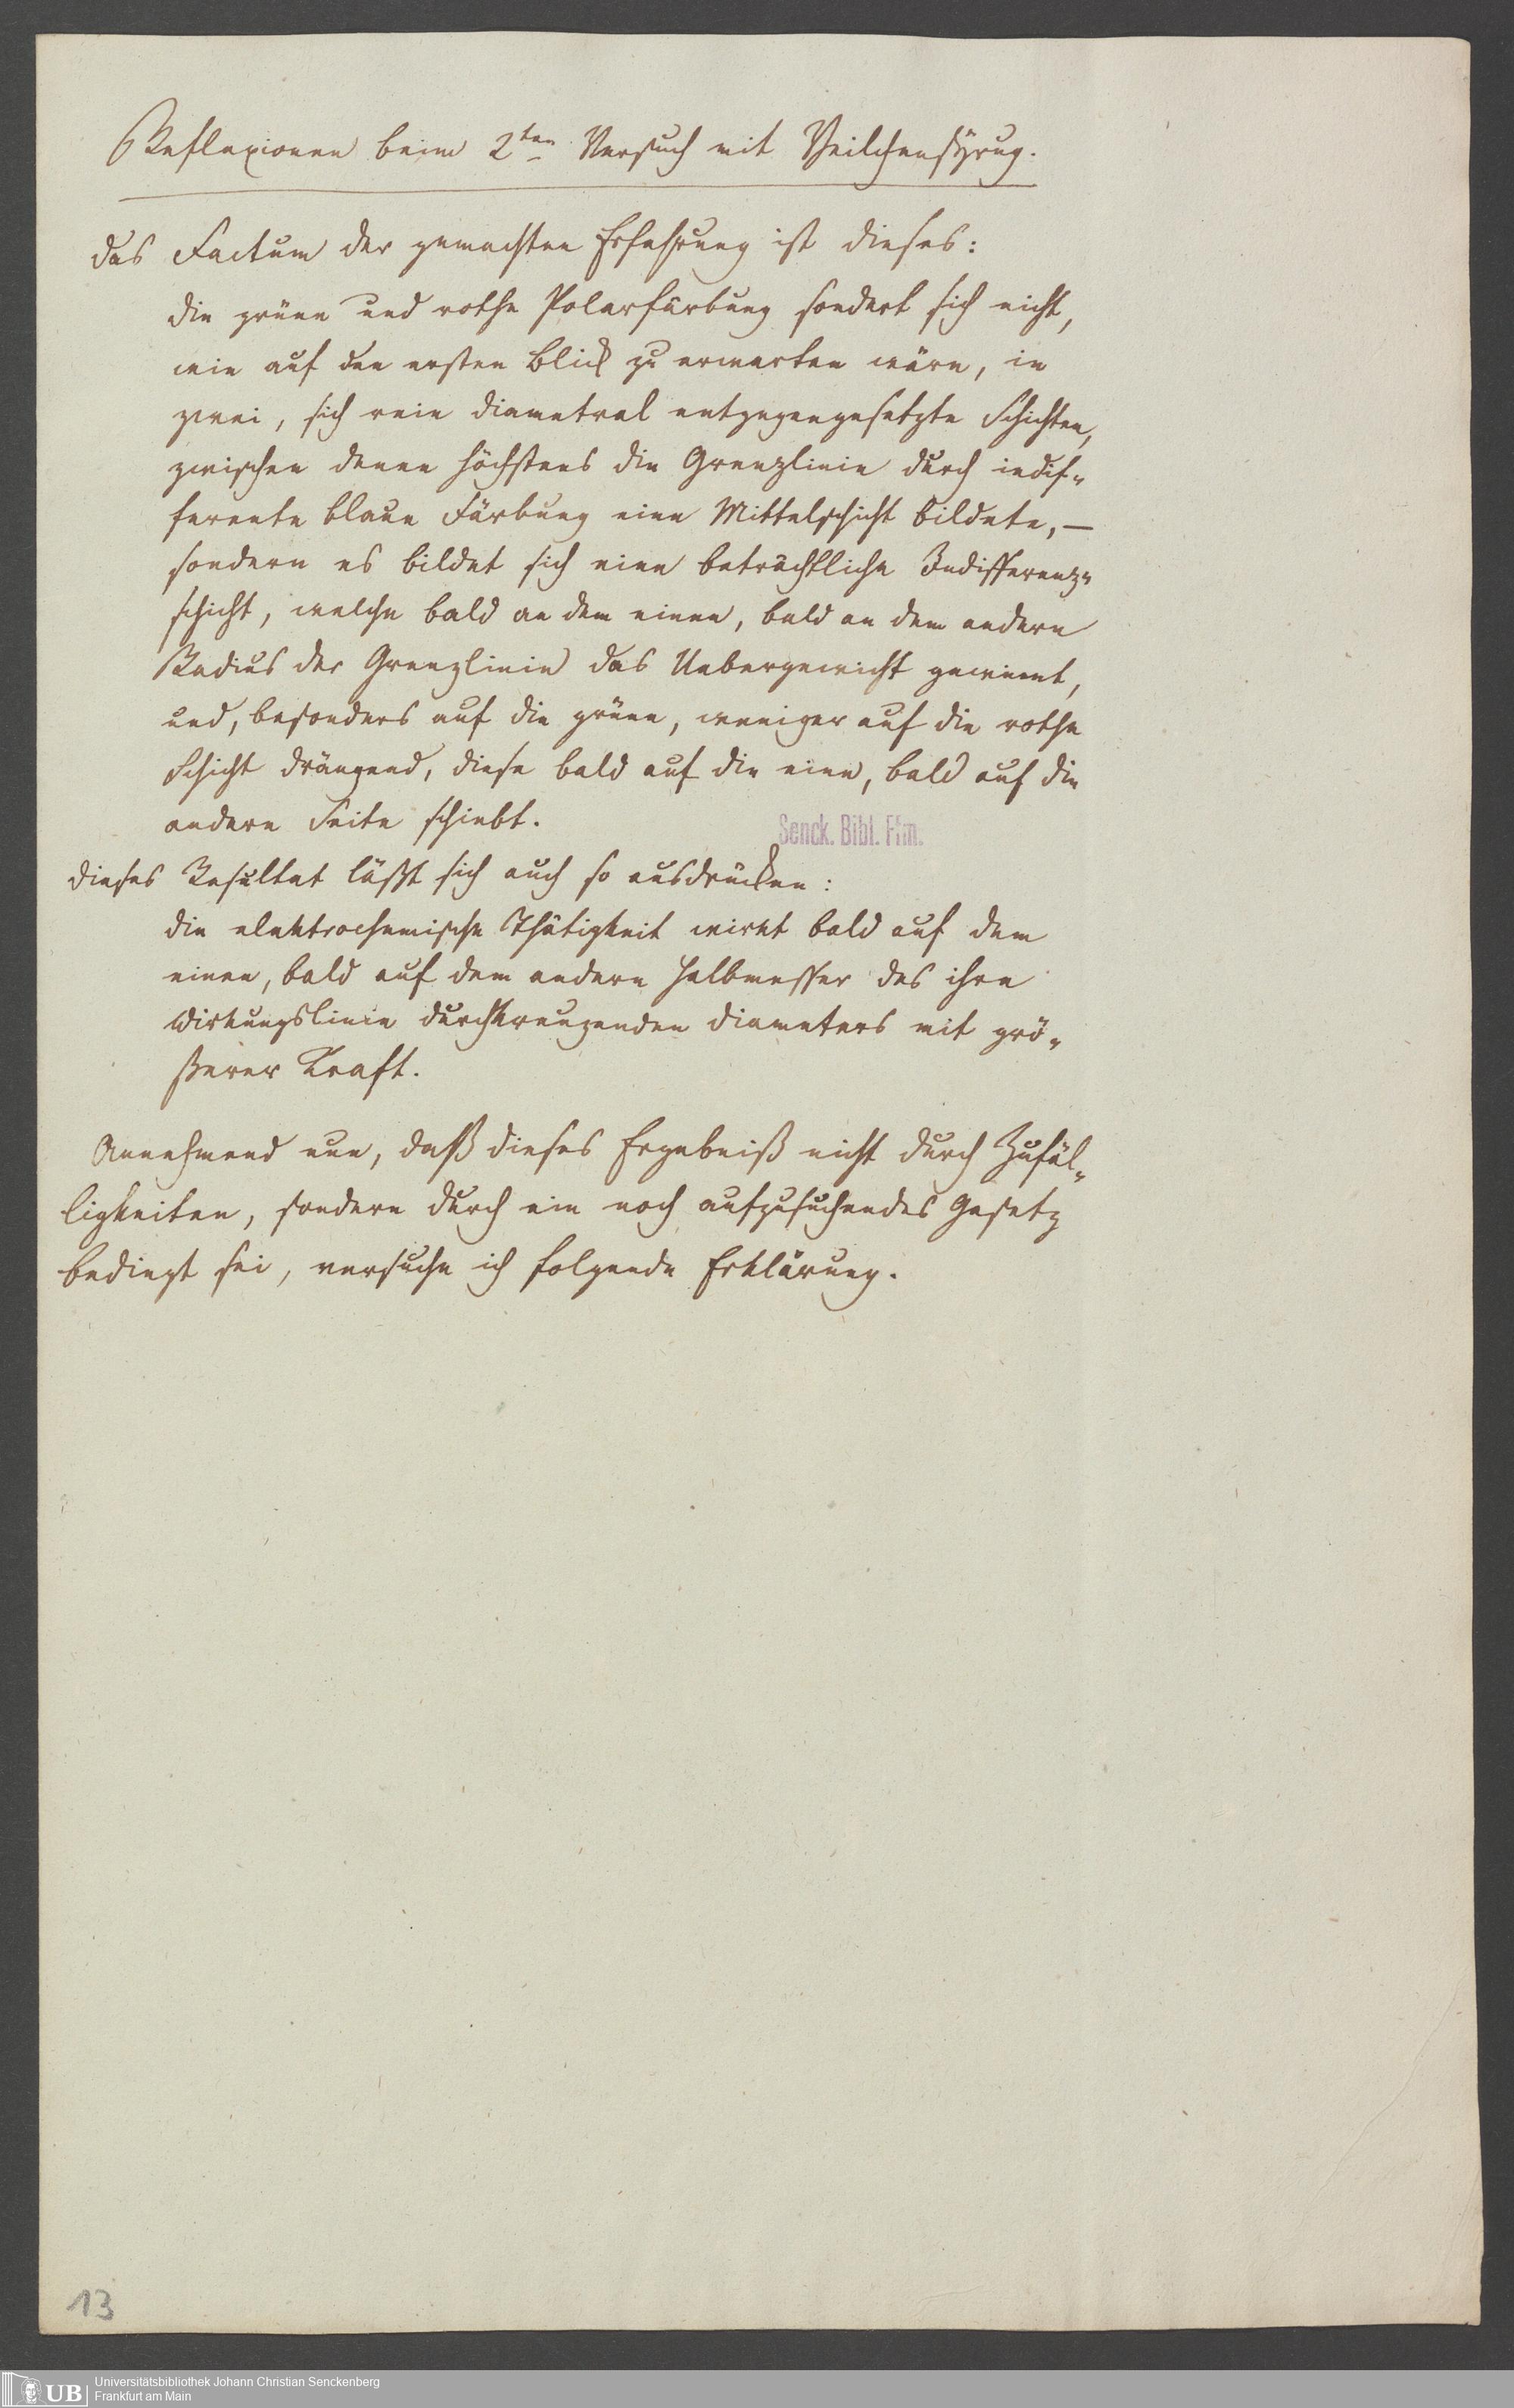 Reflexionen beim 2ten Versuch mit Veilchensyrup.
das Factum der gemachten Erfahrung ist dieses:
die grüne und rothe Polarfärbung sondert sich nicht,
wie auf den ersten Blick zu erwarten wäre, in
zwei, sich rein diametral entgegengesetzte Schichten,
zwischen denen höchstens die Grenzlinie durch indif-
ferente blaue Färbung eine Mittelschicht bildete, —
sondern es bildet sich eine beträchtliche Indifferenz-
schicht, welche bald an dem einen, bald an dem andern
Radius der Grenzlinie das Uebergewicht gewinnt,
und, besonders auf die grüne, weniger auf die rothe
Schicht drängend, diese bald auf die eine, bald auf die
andere Seite schiebt.
Senck. Bibl. Ffm.
dieses Resultat läßt sich auch so ausdrücken:
die elektrochemische Thätigkeit wirkt bald auf dem
einen, bald auf dem andern Halbmesser des ihre
Wirkungslinie durchkreuzenden Diameters mit grö-
ßerer Kraft.
Annehmend nun, daß dieses Ergebniß nicht durch Zufäl-
ligkeiten, sondern durch ein noch aufzusuchendes Gesetz
bedingt sei, versuche ich folgende Erklärung.
13
UB
Universitätsbibliothek Johann Christian Senckenberg
Frankfurt am Main